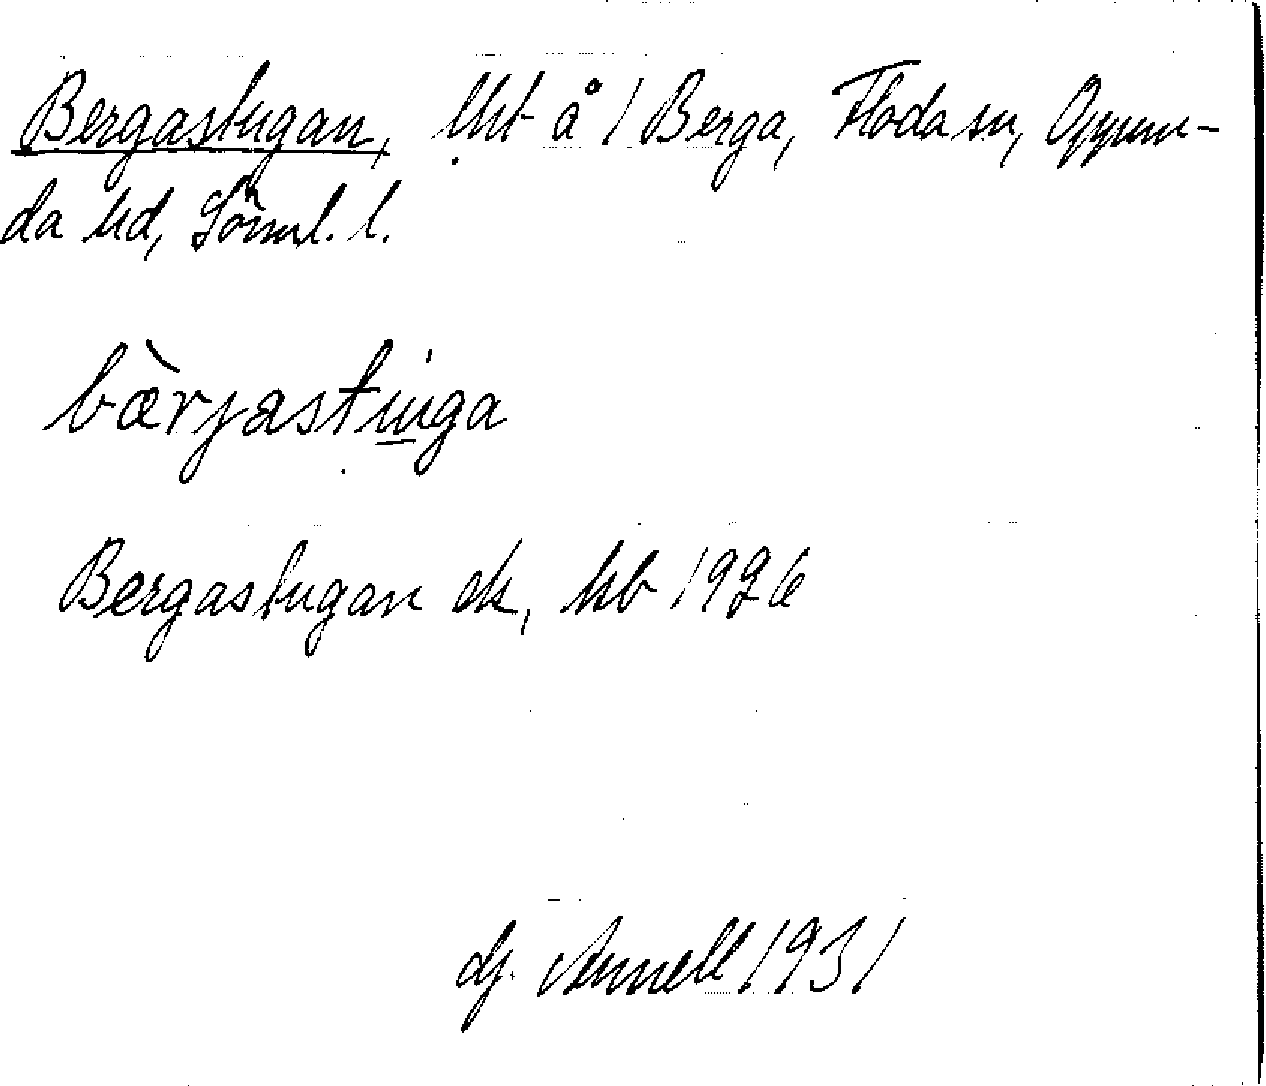 Bergastugan, lht å 1 Berga, Floda sn, Oppun-
da hd, Söml. l.
bærjastuga
Bergastugan ek, kb 1926
dj. Annell 1931